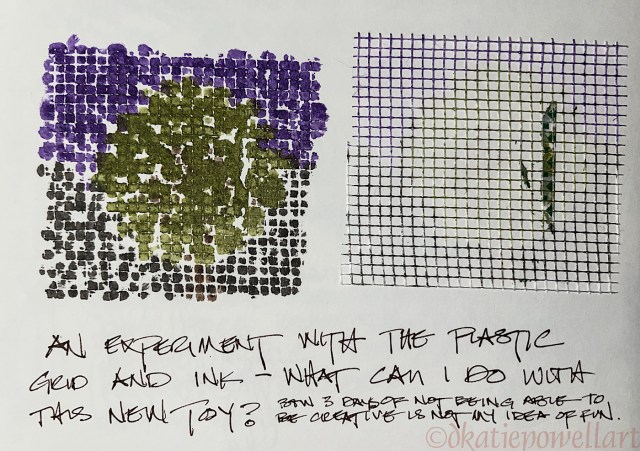 AN EXPERIMENT WITH THE PLASTIC
GRID AND INK – WHAT CAN I DO WITH
THIS NEW TOY? BTW 3 DAYS OF NOT BEING ABLE TO
BE CREATIVE IS NOT MY IDEA OF FUN.
©dkatiepowellart